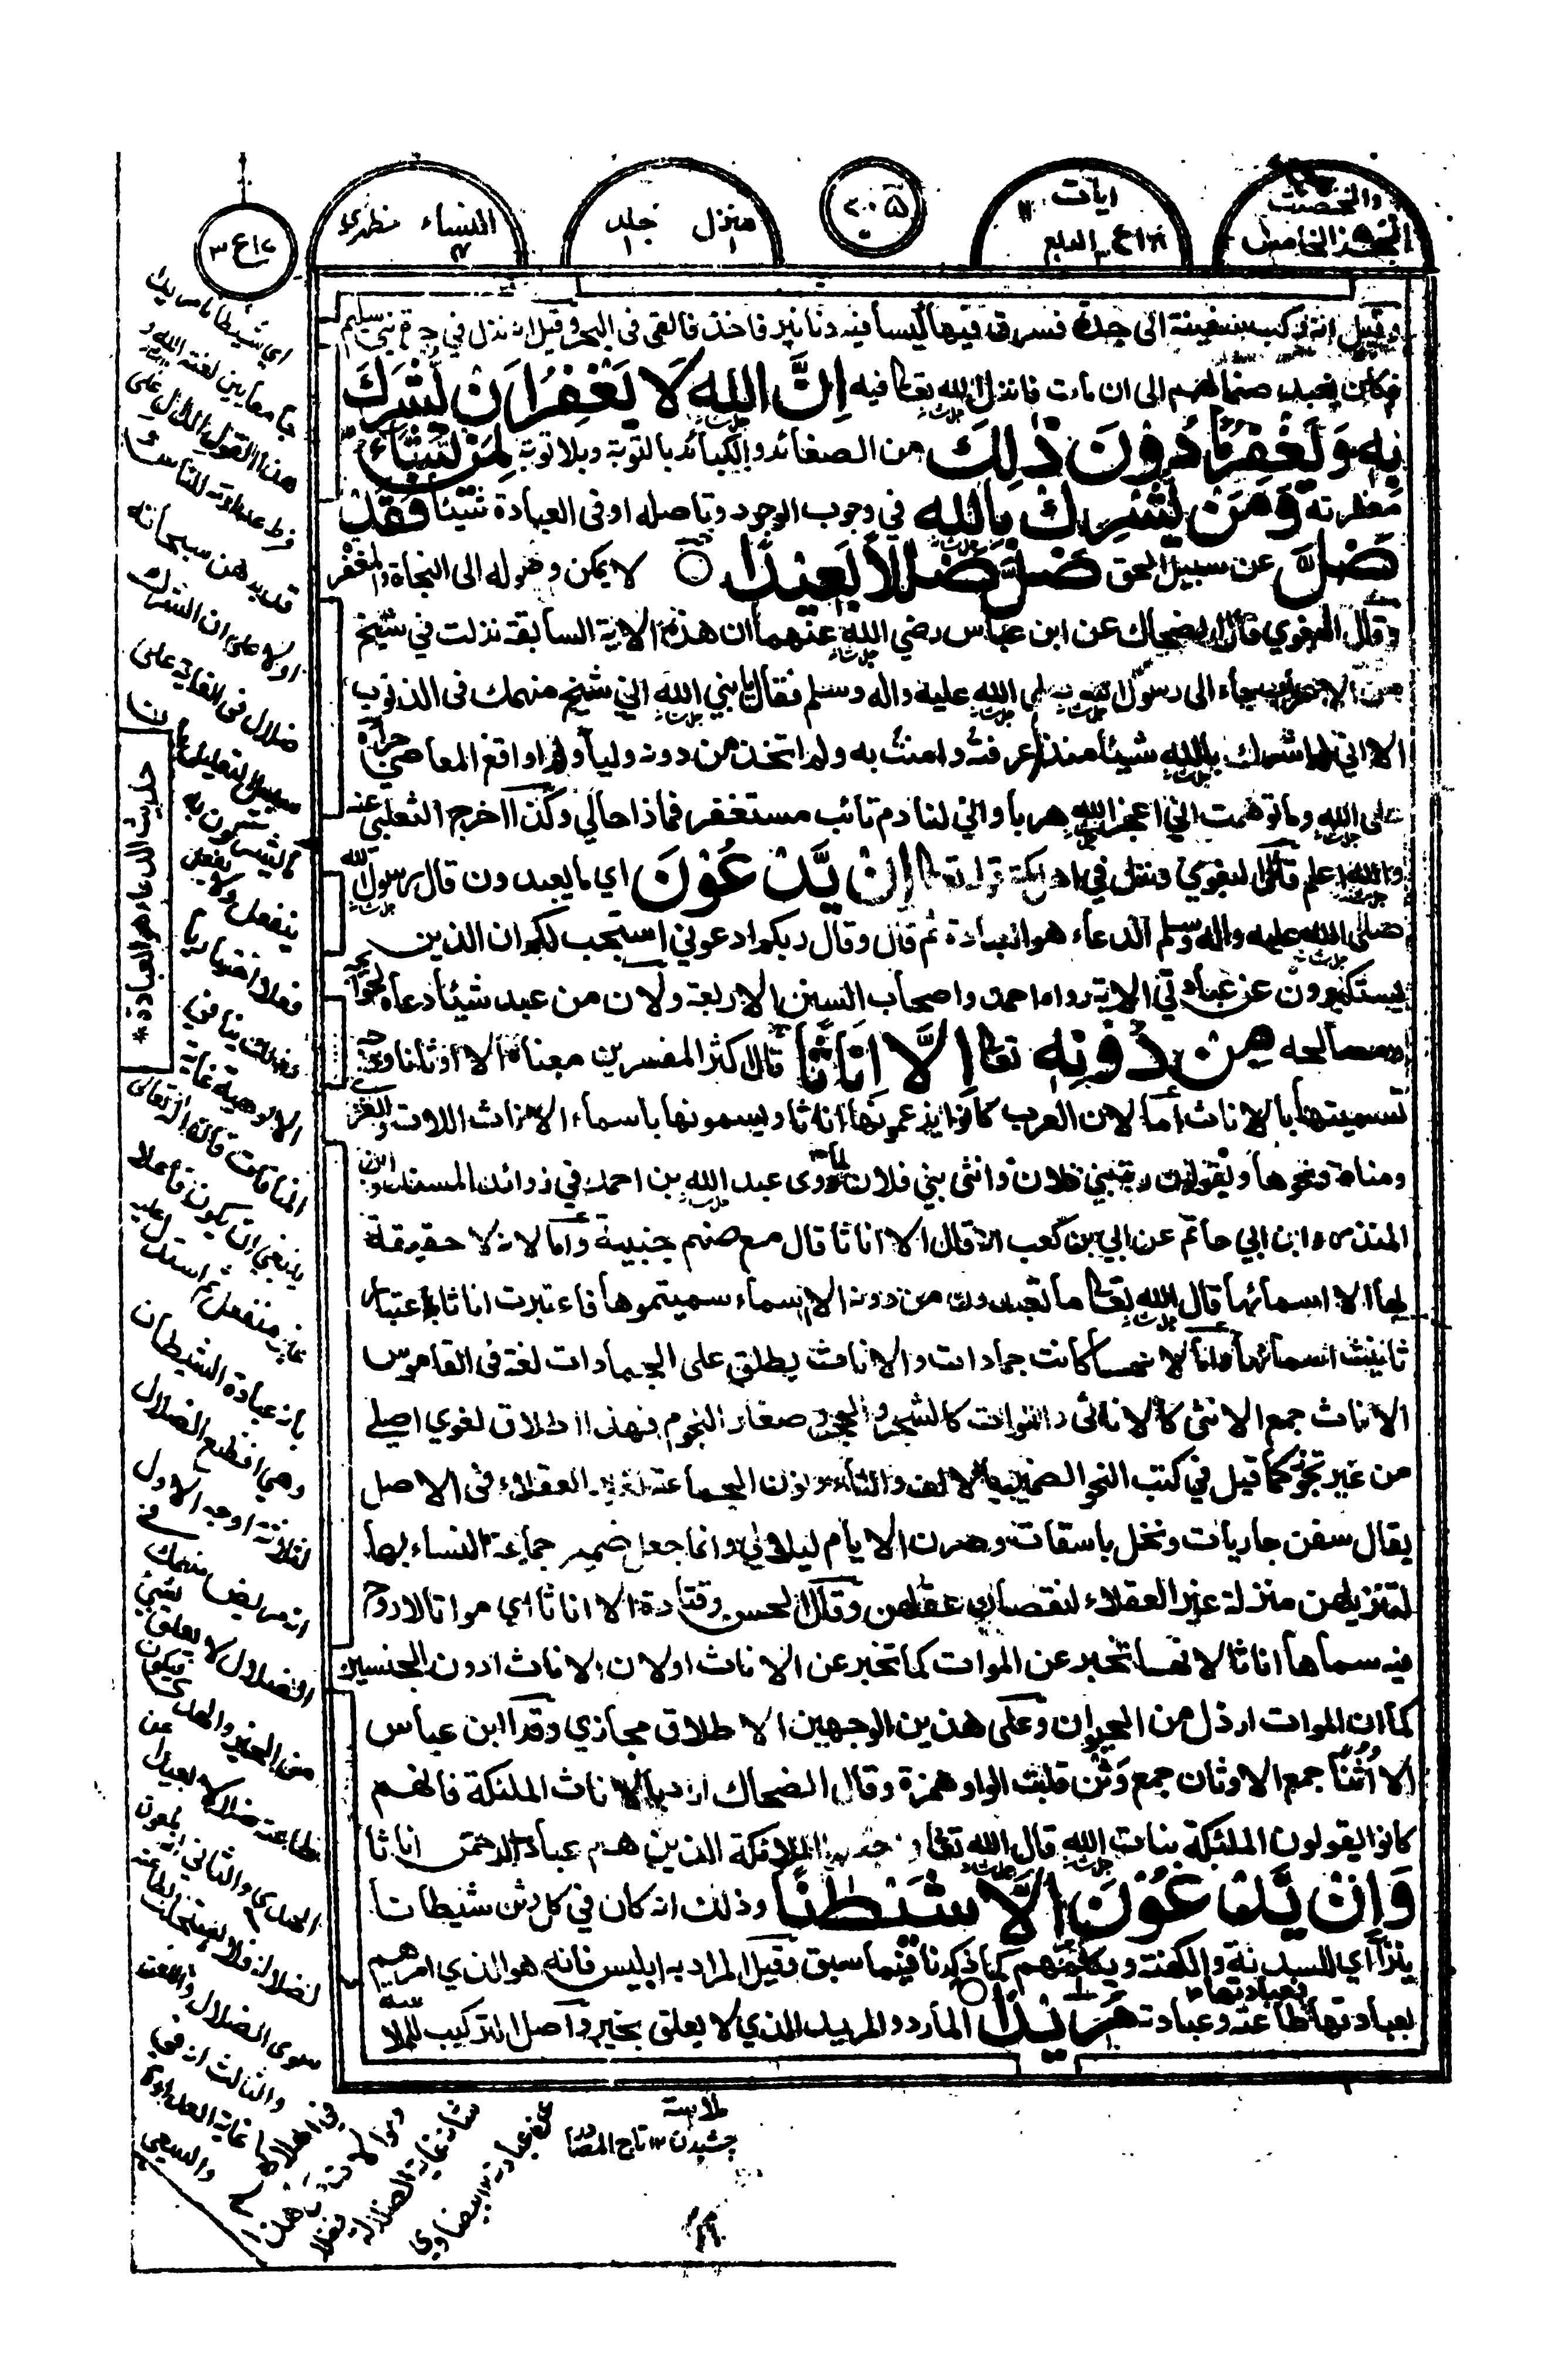 والمحصنت
الجزء الخامس
ايات
الربع
٢٠٥
منزل جلد
النساء مظهري
وقيل انه ركب سفينة الى جدة فسرق فيها كيسا فيه دنانير فاخذ فالقى فى البحر وقيل انه نزل في حرة بني سليم
فكان يعبد صنما لهم الى ان مات فانزل الله تعالى فيه اِنَّ اللهَ لَا يَغْفِرُ اَنْ يُّشْرَكَ
بِهٖ وَيَغْفِرُ مَا دُوْنَ ذٰلِكَ من الصغائر والكبائر بالتوبة وبلا توبة لِمَنْ يَّشَآءُ
مغفرته وَمَنْ يُّشْرِكْ بِاللهِ في وجوب الوجود وتاصله او فى العبادة شيئا فَقَدْ
ضَلَّ عن سبيل الحق ضَلٰلًا بَعِيْدًا لا يمكن وصوله الى النجاة والمغفرة
وقال البغوي قال الضحاك عن ابن عباس رضي الله عنهما ان هذه الاية السابقة نزلت في شيخ
من الاعراب جاء الى رسول الله صلى الله عليه واله وسلم فقال يا نبي الله اني شيخ منهمك فى الذنوب
الا اني لم اشرك بالله شيئا منذ عرفته وامنت به ولم اتخذ من دونه وليا ولم اواقع المعاصي جرأة
على الله وما توهمت اني اعجز الله هربا واني لنادم تائب مستغفر فماذا حالي وكذا اخرج الثعلبي عنه
والله اعلم قال البغوي ونزل في اهل مكة قوله تعالى اِنْ يَّدْعُوْنَ اي ما يعبدون قال رسول الله
صلى الله عليه واله وسلم الدعاء هو العبادة ثم قال وقال ربكم ادعوني استجب لكم ان الذين
يستكبرون عن عبادتي الاية رواه احمد واصحاب السنن الاربعة ولان من عبد شيئا دعاه لحوائجه
ومصالحه مِنْ دُوْنِهٖ تعالى اِلَّآ اِنَاثًا قال اكثر المفسرين معناه الا اوثانا
تسميتها بالاناث اما لان العرب كانوا يزعمونها اناثا ويسمونها باسماء الاناث اللات والعزى
ومناة ونحوها ويقولون بني فلان وانثى بني فلان روى عبد الله بن احمد في زوائد المسند وابن
المنذر وابن ابي حاتم عن ابي بن كعب انه قال الا اناثا قال مع صنم جنيية واما لانه لا حقيقة
لها الا اسمائها قال الله تعالى ما تعبدون من دونه الا اسماء سميتموها فاعتبرت اناثا باعتبار
تانيث اسمائها واما لانها كانت جمادات والاناث يطلق على الجمادات لغة فى القاموس
الاناث جمع الانثى كالاناثى والموات كالشجر والحجر وصغار النجوم فهذا اطلاق لغوي اصلي
من غير تجوز كما قيل في كتب النحو الضمير بالالف والتاء ونون الجماعة لغير العقلاء فى الاصل
يقال سفن جاريات ونخل باسقات وهرن الايام ليلا وانما جعل ضمير جماعة النساء بها
لتنزيلهن منزلة غير العقلاء لنقصان عقلهن وقال الحسن وقتادة الا اناثا اي مواتا لا روح
فيه سماها اناثا لانها تخبر عن الموات كما تخبر عن الاناث او لان الاناث ادون الجنسين
كما ان الموات ارذل من الحيوان وعلى هذين الوجهين الاطلاق مجازي وقرأ ابن عباس
الا اُثُنًا جمع الاوثان جمع وَثَن قلبت الواو همزة وقال الضحاك اراد بالاناث الملئكة فانهم
كانوا يقولون الملئكة بنات الله قال الله تعالى وجعلوا الملائكة الذين هم عباد الرحمن اناثا
وَاِنْ يَّدْعُوْنَ اِلَّا شَيْطٰنًا وذلك انه كان في كل وثن شيطان
يتزأى للسدنة والكهنة ويكلمهم كما ذكرنا فيما سبق وقيل المراد به ابليس فانه هو الذي امرهم
بعبادتها
بعبادتها فطاعته وعبادته مَرِيْدًا المارد والمريد الذي لا يعلق بخير واصل التركيب للملاسة
حديث الدعاء هو العبادة*
اي شيطانا مريدا
جامعا بين لعنة الله و
هذا القول الدال على
فرط عداوته للناس و
قد برهن سبحانه
اولا على ان الشرك
ضلال فى الغاية على
سبيل التعليل بان
ما يشركون به
ينفعل ولا يفعل
فعلا اختياريا
وذلك ينافي
الالوهية غاية
المنافات فان الاله تعالى
ينبغي ان يكون فاعلا
غير منفعل ثم استدل عليه
بانه عبادة الشيطان
وهي افظع الضلال
لثلاثة اوجه الاول
انه مريد منهمك في
الضلال لا يعلق بشيء
من الخير والهدى فيكون
طاعته ضلالا بعيدا عن
الهدى والثاني انه ملعون
لضلاله فلا يستجلب مطاوعته
سوى الضلال واللعن
والثالث انه في
غاية العداوة
والسعي
في اهلاكهم
وموالاة من هذا
شانه غاية الضلال فضلا
عن عبادته بيضاوي
ملاسة
تاج المصادر